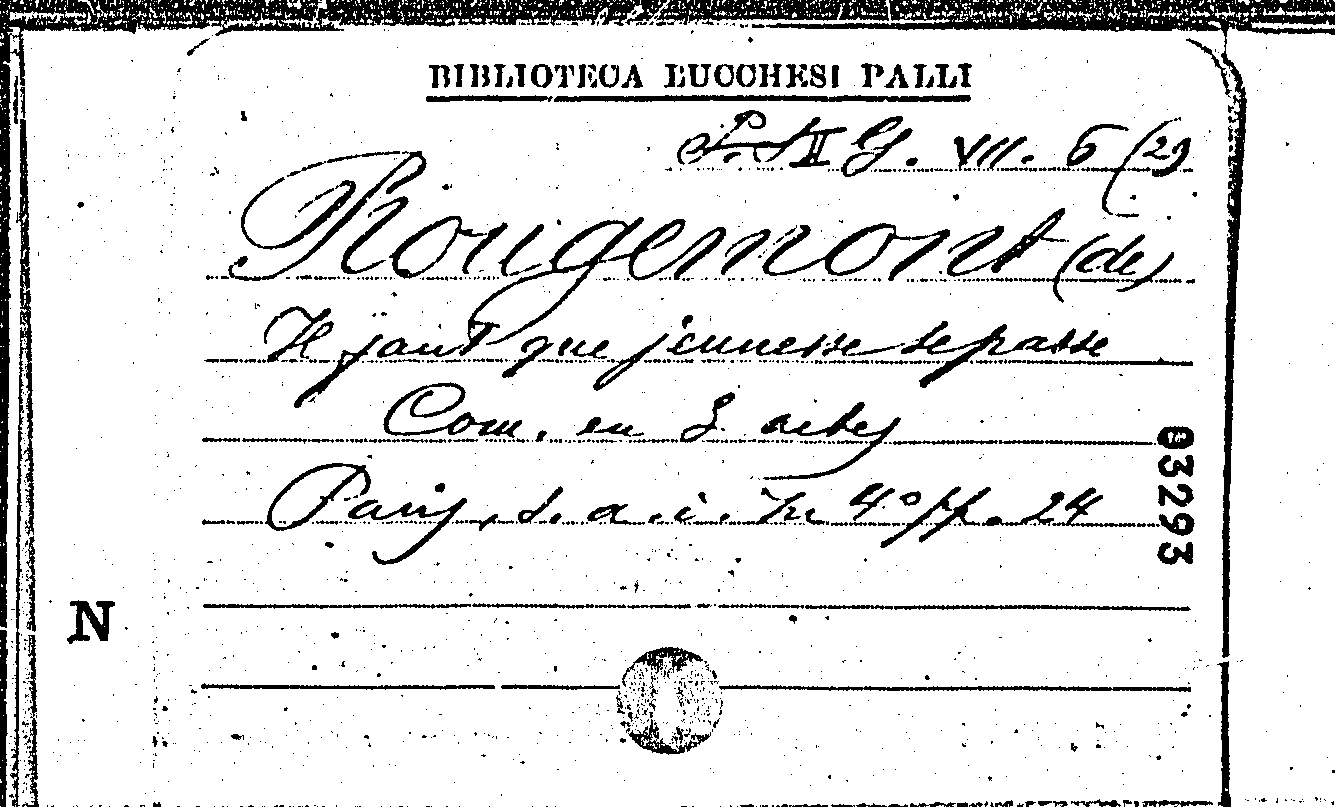 BIBLIOTECA LUCCHESI PALLI
G. VII. 6 (29
Rougemont (de)
Il faut que jeunesse se passe
Com. en 3 actes
Paris, s. a. i. In 4° pp. 24
83293
N